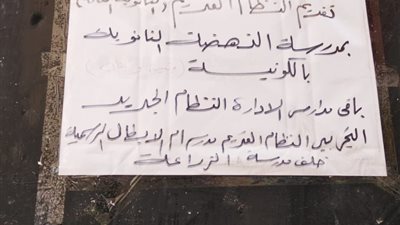 تقديم النظام القديم (الثانوية العامة)
بمدرسة النهضة الثانوية
بالكونيسة
باقى مدارس الادارة النظام الجديد
النظام القديم مدرسة ام الابطال الرسمية
خلف مدرسة الزراعة